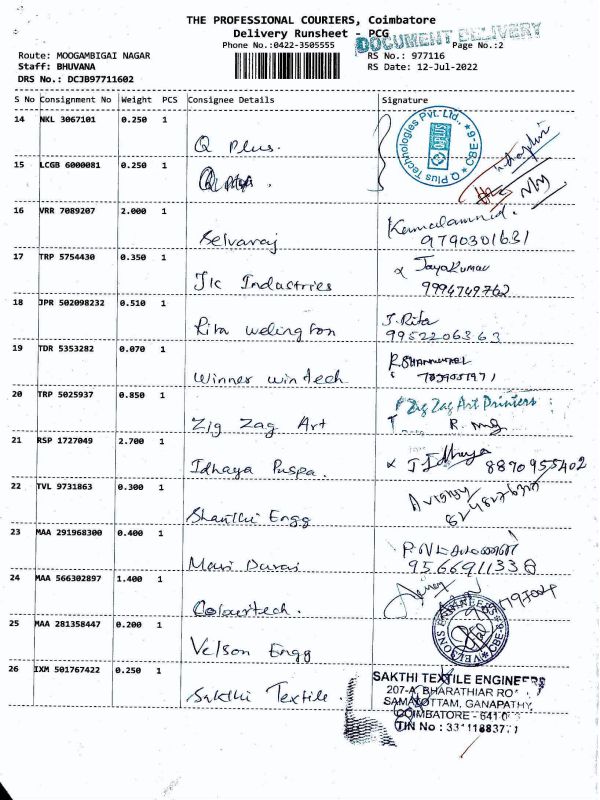 THE PROFESSIONAL COURIERS, Coimbatore
Delivery Runsheet - PCG
DOCUMENT DELIVERY
Phone No.:0422-3505555
Page No.:2
Route: MOOGAMBIGAI NAGAR
RS No.: 977116
Staff: BHUVANA
RS Date: 12-Jul-2022
DRS No.: DCJB97711602
S No Consignment No Weight PCS Consignee Details Signature
14 NKL 3067101 0.250 1
Q Plus.
Q Plus Technologies Pvt. Ltd., CBE-9
15 LCGB 6000081 0.250 1
Q Plus.
16 VRR 7089207 2.000 1
Selvaraj
9790301631
17 TRP 5754430 0.350 1
JK Industries
x Jayakumar
9994749762
18 JPR 502098232 0.510 1
Rita welington
J. Rita
9952206363
19 TDR 5353282 0.070 1
Winner wintech
20 TRP 5025937 0.850 1
Zig Zag Art
Zig Zag Art Printers
21 RSP 1727049 2.700 1
Idhaya Puspa.
x J Idhaya
8870955402
22 TVL 9731863 0.300 1
Shanthi Engg
23 MAA 291968300 0.400 1
Mari Durai
24 MAA 566302897 1.400 1
Colourtech.
25 MAA 281358447 0.200 1
Velson Engg
ENGINEERS CBE-9
26 IXM 501767422 0.250 1
Sakthi Textile.
SAKTHI TEXTILE ENGINEERS
207-A, BHARATHIAR RO
SAMATOTTAM, GANAPATHY,
COIMBATORE - 641 0
TIN No :